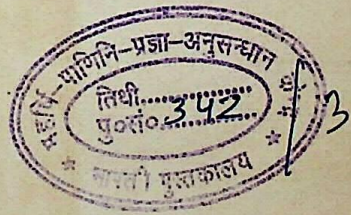 महर्षि-पाणिनि-प्रज्ञा-अनुसन्धान
तिथी..............
पु०सं०...342......
भारती पुस्तकालय
3